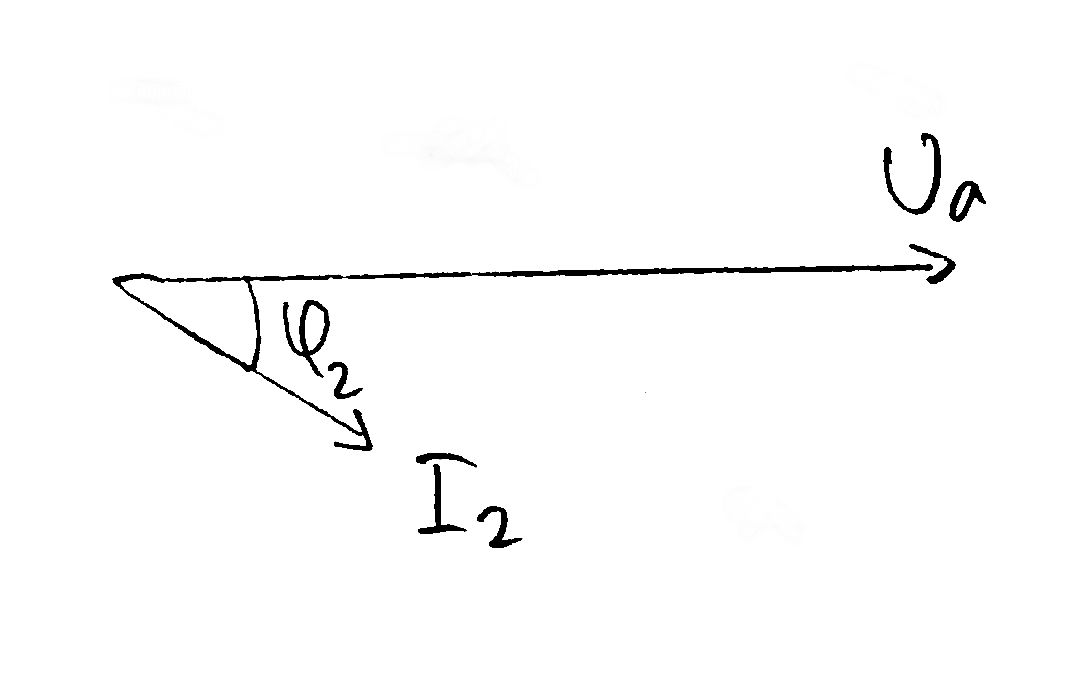 Ua
φ2
I2